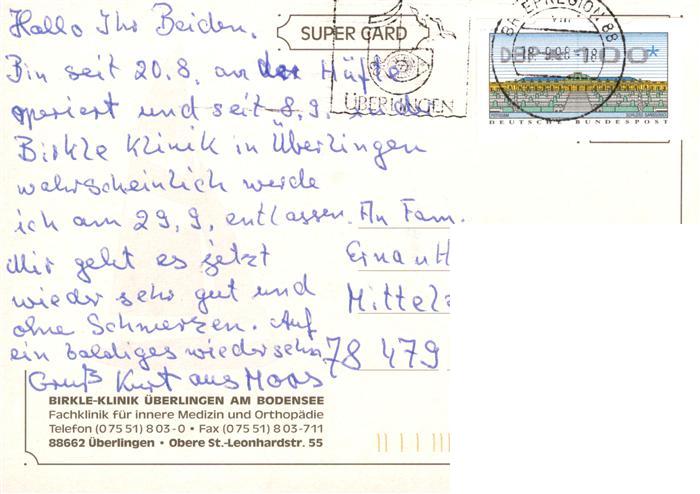 Hallo Ihr Beiden.
SUPER CARD
Bin seit 20.8. an der Hüfte
operiert und seit 8.9. in der
Birkle Klinik in Überlingen
wahrscheinlich werde
ich am 29.9. entlassen.
Mir geht es jetzt
wieder sehr gut und
ohne Schmerzen. Auf
ein baldiges wiedersehn
Gruß Kurt aus Moos
ÜBERLINGEN
BRIEFREGION 88
DBP
100*
DEUTSCHE BUNDESPOST
An Fam.
Erna u H
Mittelz
78 479
BIRKLE-KLINIK ÜBERLINGEN AM BODENSEE
Fachklinik für innere Medizin und Orthopädie
Telefon (0 75 51) 8 03-0 • Fax (0 75 51) 8 03-711
88662 Überlingen • Obere St.-Leonhardstr. 55